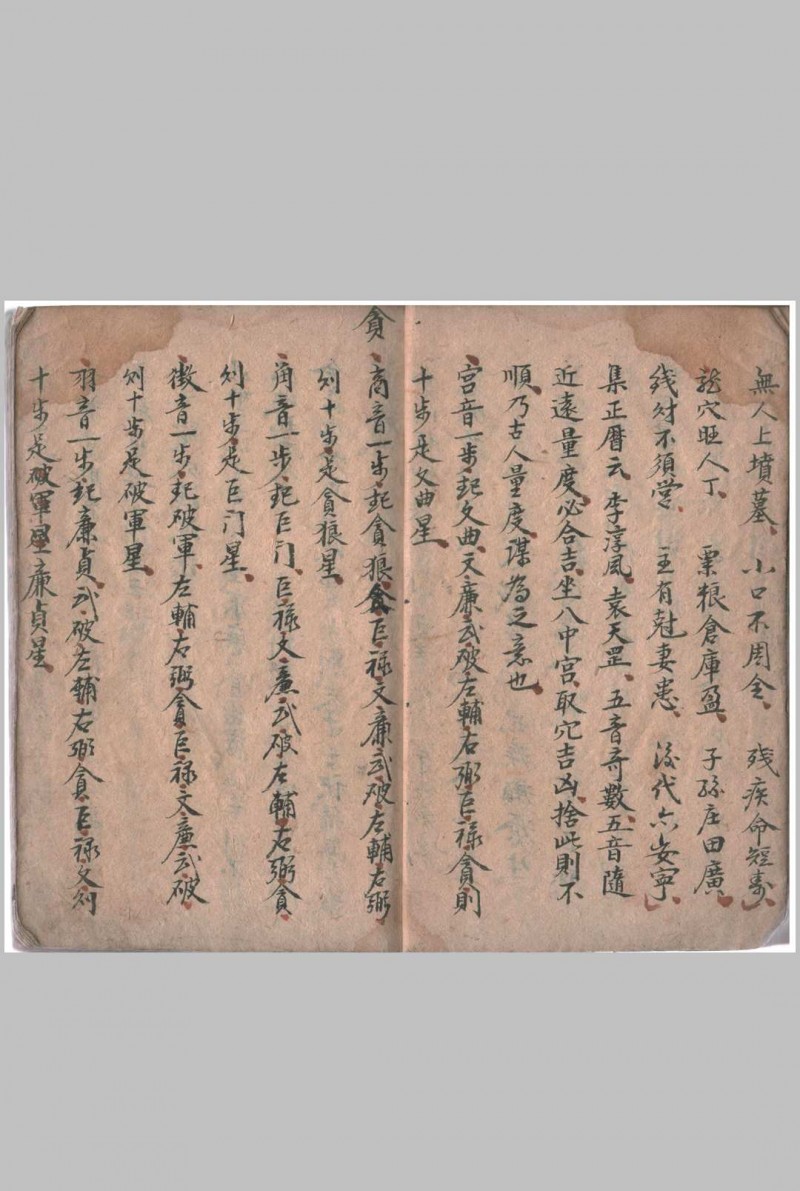 無人上墳墓 小口不周全 残疾命短壽
龍穴旺人丁 粟粮倉庫盈 子孫庄田廣
线财不須営 主有尅妻患 後代六安寧
集正曆云李淳風袁天罡五音奇數五音隨
近遠量度必合吉坐八中宫取穴吉凶捨此則不
順乃古人量度谋為之意也
宮音一步起文曲文廉武破左輔右弼巨禄貪則
十步是文曲星
貪
商音一步起貪狼貪巨禄文廉武破左輔右弼
则十步是貪狼星
角音一步起巨门巨禄文廉武破左輔右弼貪
则十步是巨门星
徵音一步起破軍左輔右弼貪巨禄文廉武破
则十步是破軍星
羽音一步起廉貞武破左輔右弼貪巨禄文则
十步是破軍星廉貞星